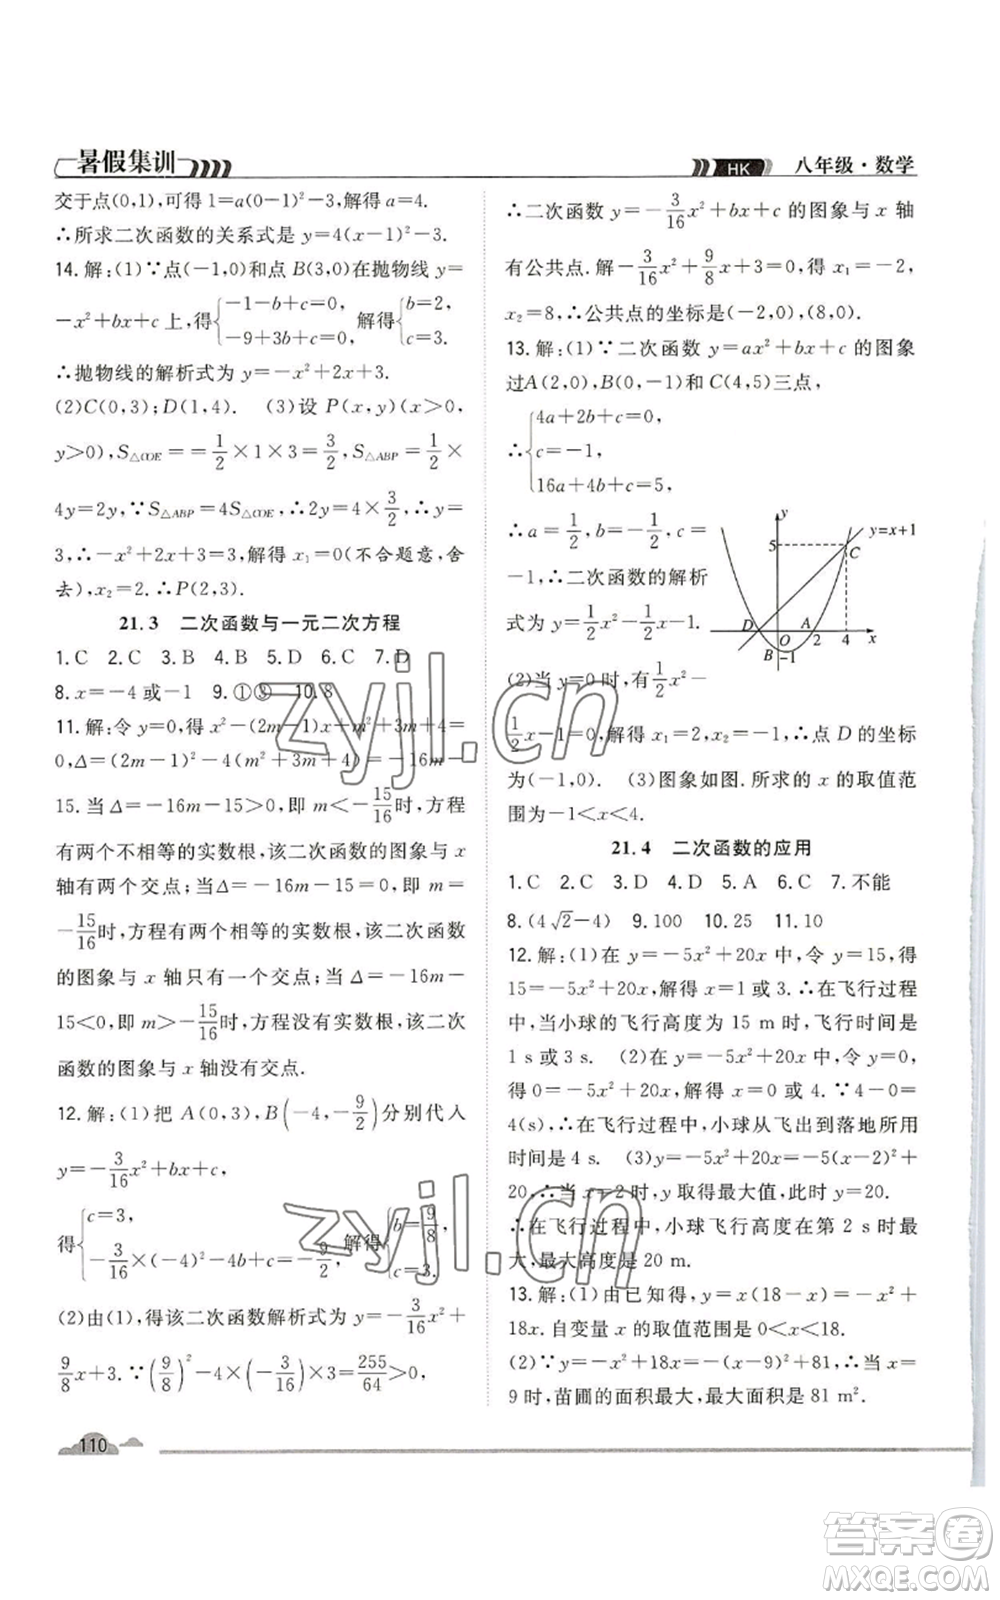 暑假集训
HK 八年级·数学
交于点(0,1),可得 1=a(0-1)²-3,解得 a=4.
∴所求二次函数的关系式是 y=4(x-1)²-3.
14.解:(1)∵点(-1,0)和点 B(3,0)在抛物线 y=
-x²+bx+c 上,得{-1-b+c=0, -9+3b+c=0, 解得{b=2, c=3.
∴抛物线的解析式为 y=-x²+2x+3.
(2)C(0,3);D(1,4). (3)设 P(x,y)(x>0,
y>0),S△COE==1/2×1×3=3/2,S△ABP=1/2×
4y=2y,∵S△ABP=4S△COE,∴2y=4×3/2,∴y=
3,∴-x²+2x+3=3,解得 x₁=0(不合题意,舍
去),x₂=2.∴P(2,3).
21.3 二次函数与一元二次方程
1.C 2.C 3.B 4.B 5.C 6.C 7.D
8.x=-4或-1 9.①③ 10.8
11.解:令 y=0,得 x²-(2m-1)x+m²+3m+4=
0,Δ=(2m-1)²-4(m²+3m+4)=-16m-
15.当 Δ=-16m-15>0,即 m<-15/16时,方程
有两个不相等的实数根,该二次函数的图象与 x
轴有两个交点;当 Δ=-16m-15=0,即 m=
-15/16时,方程有两个相等的实数根,该二次函数
的图象与 x 轴只有一个交点;当 Δ=-16m-
15<0,即 m>-15/16时,方程没有实数根,该二次
函数的图象与 x 轴没有交点.
12.解:(1)把 A(0,3),B(-4,-9/2)分别代入
y=-3/16x²+bx+c,
得{c=3, -3/16×(-4)²-4b+c=-9/2, 解得{b=9/8, c=3.
(2)由(1),得该二次函数解析式为 y=-3/16x²+
9/8x+3.∵(9/8)²-4×(-3/16)×3=255/64>0,
110
∴二次函数 y=-3/16x²+bx+c 的图象与 x 轴
有公共点.解-3/16x²+9/8x+3=0,得 x₁=-2,
x₂=8,∴公共点的坐标是(-2,0),(8,0).
13.解:(1)∵二次函数 y=ax²+bx+c 的图象
过A(2,0),B(0,-1)和 C(4,5)三点,
∴{4a+2b+c=0, c=-1, 16a+4b+c=5,
∴a=1/2,b=-1/2,c=
-1,∴二次函数的解析
式为 y=1/2x²-1/2x-1.
(2)当 y=0时,有1/2x²-
y
y=x+1
5
C
D
A
O 2 4 x
B -1
1/2x-1=0,解得 x₁=2,x₂=-1,∴点 D 的坐标
为(-1,0). (3)图象如图.所求的 x 的取值范
围为-1<x<4.
21.4 二次函数的应用
1.C 2.C 3.D 4.D 5.A 6.C 7.不能
8.(4√2-4) 9.100 10.25 11.10
12.解:(1)在 y=-5x²+20x中,令 y=15,得
15=-5x²+20x,解得 x=1或 3.∴在飞行过程
中,当小球的飞行高度为 15 m时,飞行时间是
1 s或 3 s. (2)在 y=-5x²+20x中,令 y=0,
得 0=-5x²+20x,解得 x=0或 4.∵4-0=
4(s),∴在飞行过程中,小球从飞出到落地所用
时间是 4 s. (3)y=-5x²+20x=-5(x-2)²+
20,∴当 x=2时,y取得最大值,此时 y=20.
∴在飞行过程中,小球飞行高度在第 2 s时最
大,最大高度是 20 m.
13.解:(1)由已知得,y=x(18-x)=-x²+
18x.自变量 x 的取值范围是 0<x<18.
(2)∵y=-x²+18x=-(x-9)²+81,∴当 x=
9时,苗圃的面积最大,最大面积是 81 m².
zyjl.cn
zyjl.cn
答案圈
MXQE.COM